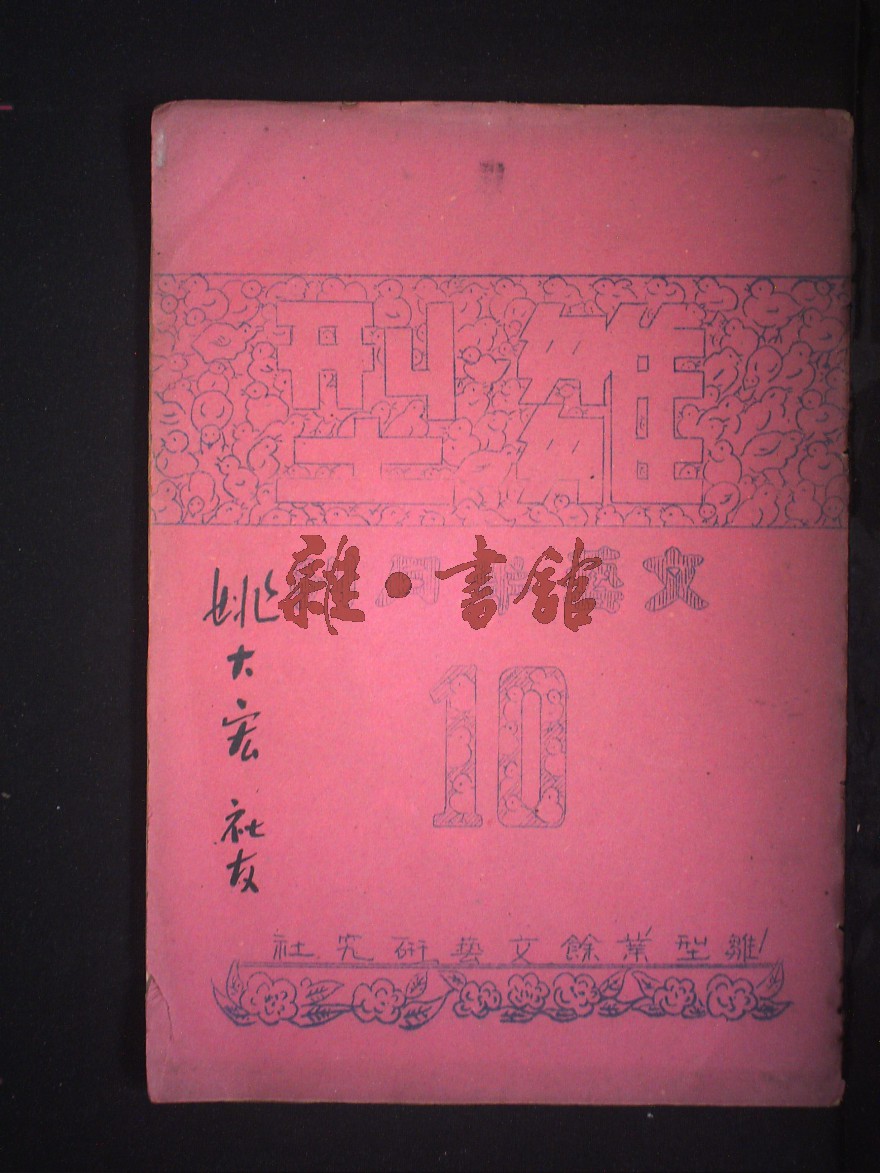 雛型
文藝半月刊
雜·書館
10
姚大宏 社友
雛型業餘文藝研究社